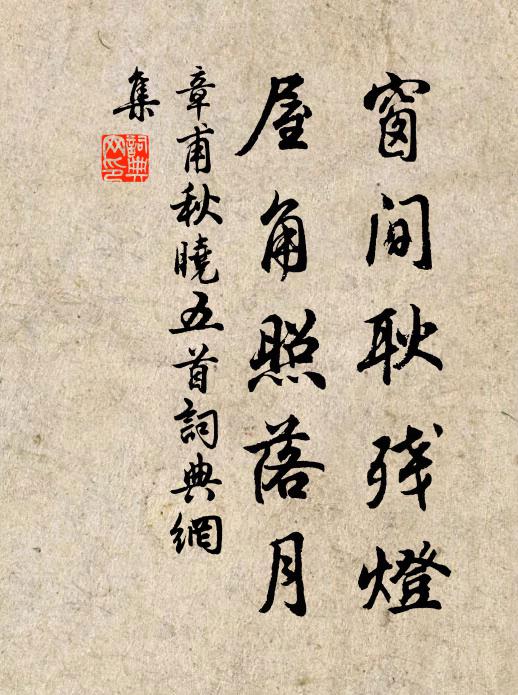 窗间耿残燈
屋角照落月
章甫秋曉五首詞典網
集
詞典網印